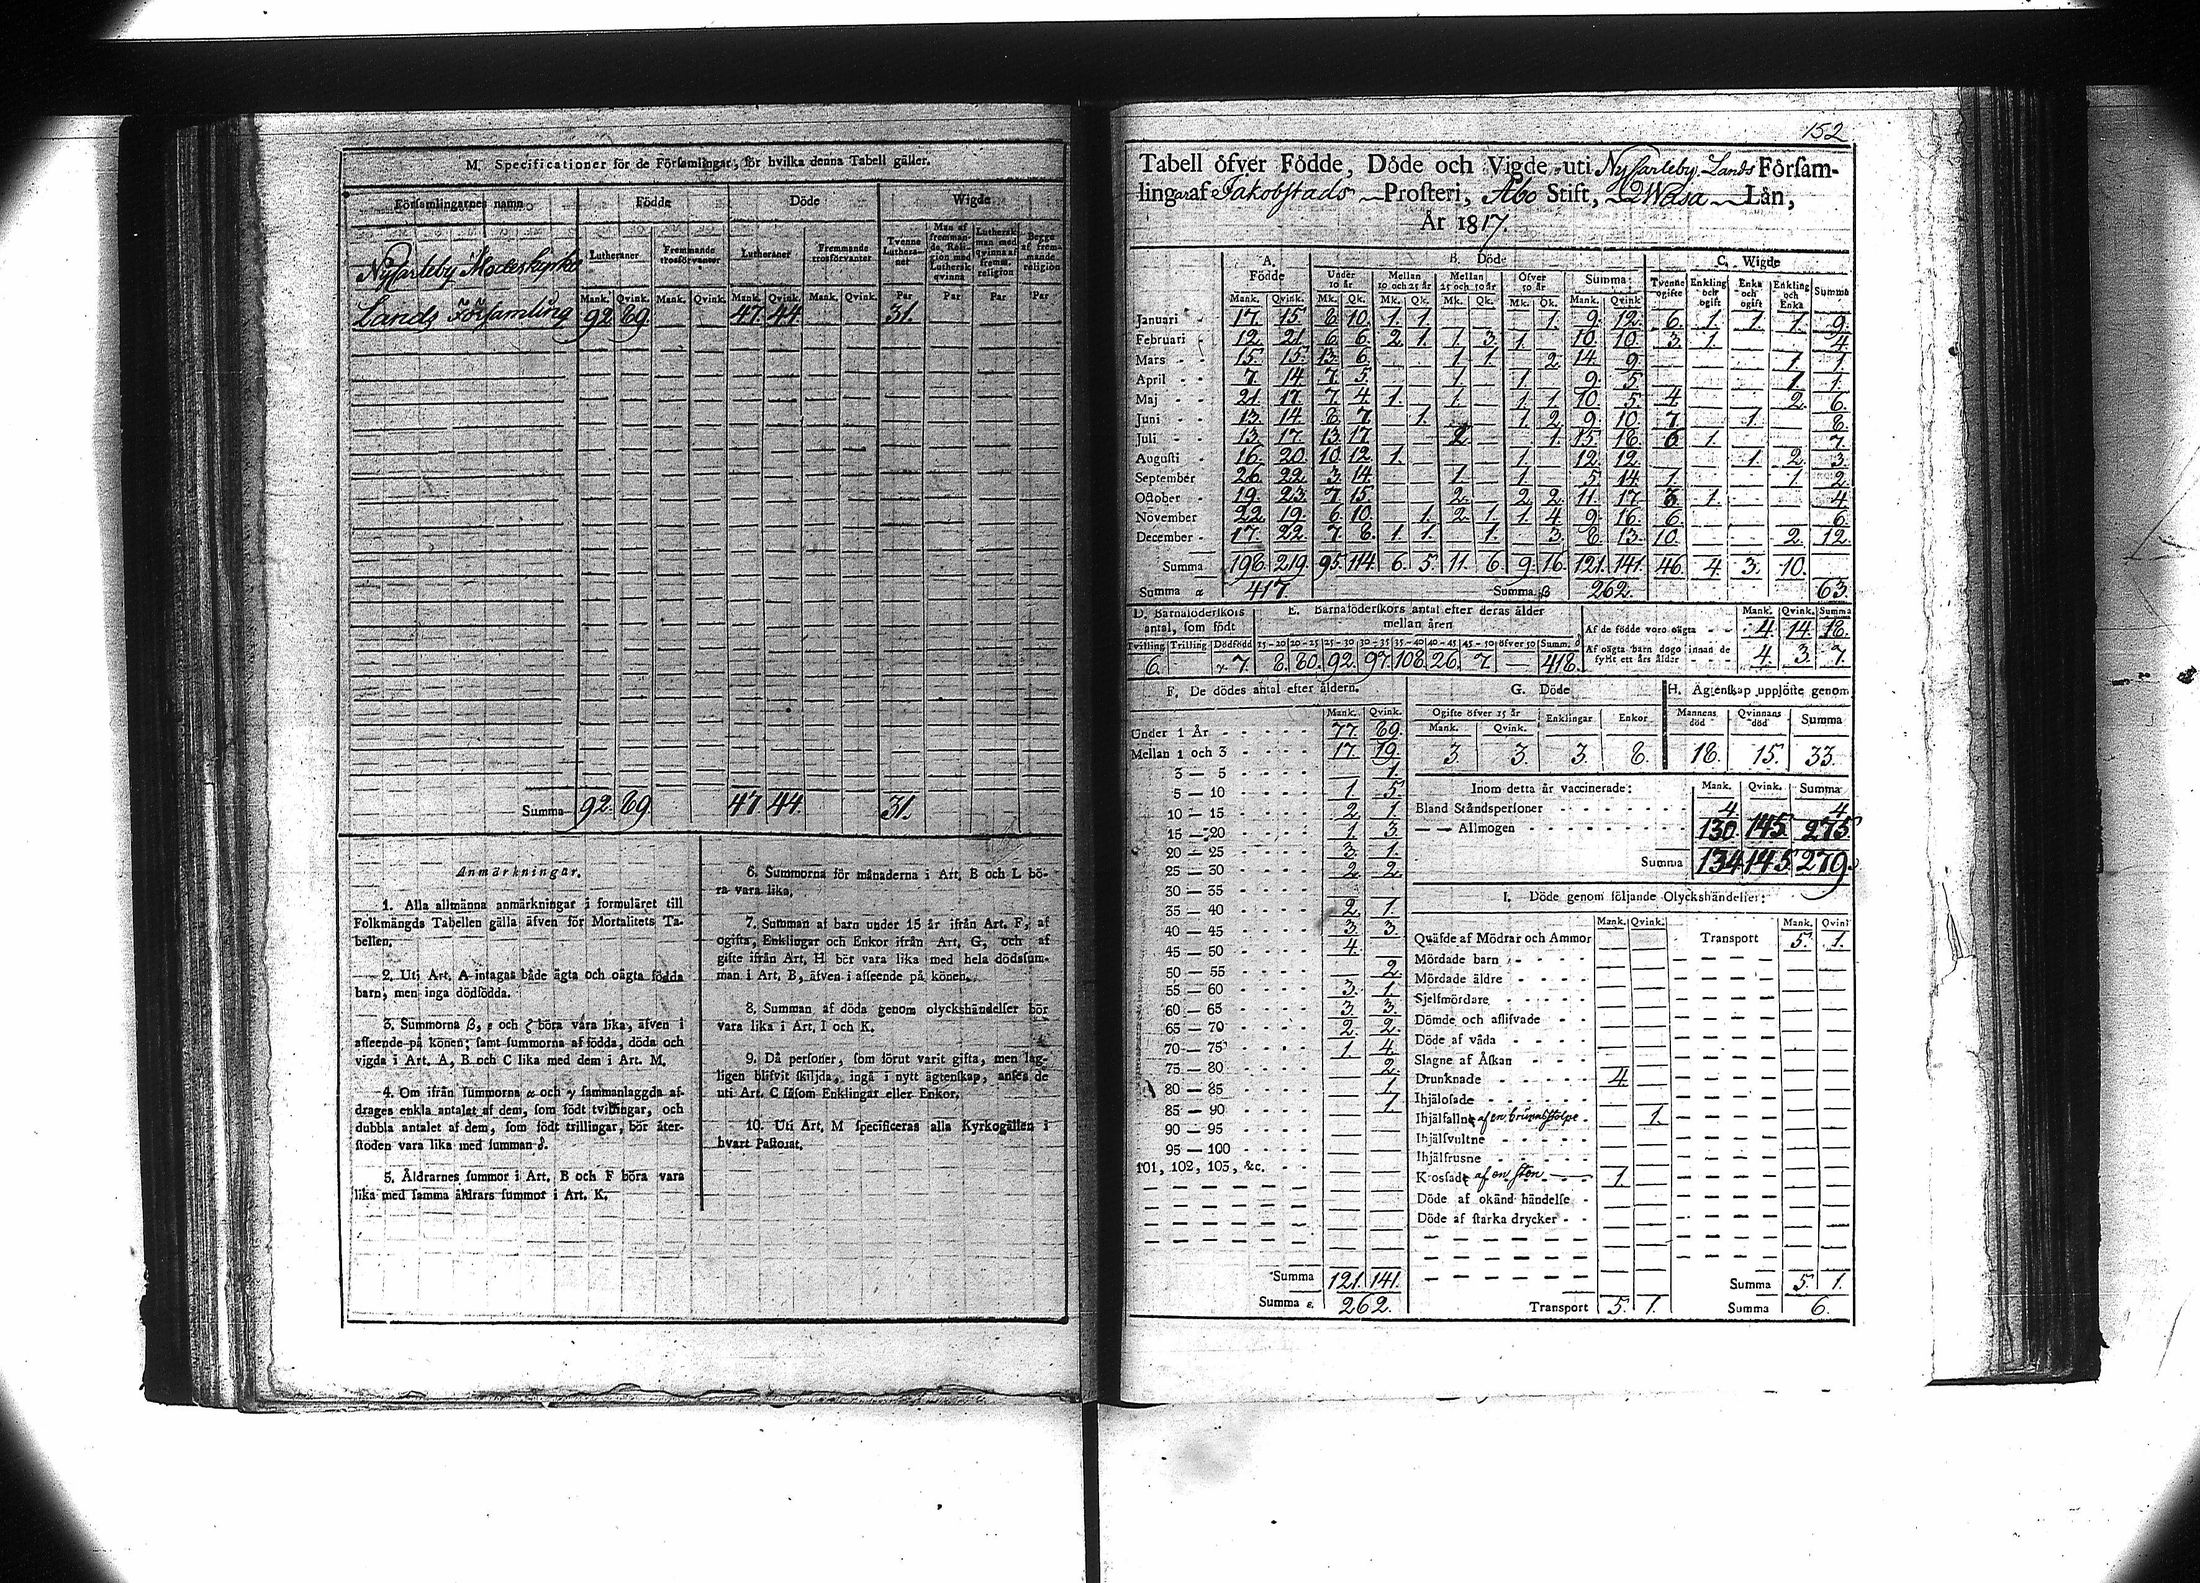 M. Specificationer för de Församlingar, för hvilka denna Tabell gäller.
Församlingarnes namn Födde Döde Wigde
Lutheraner Fremmande trosförvanter Lutheraner Fremmande trosförvanter Tvenne Lutheraner Man af fremmande Religion med Luthersk qvinna Luthersk man med qvinna af fremm. religion Begge af fremmande religion
Mank. Qvink. Mank. Qvink. Mank. Qvink. Mank. Qvink. Par Par Par Par
Nycarleby Moderkyrko
Lands Församling 92 89 — — 47 44 — — 31. — — —
Summa 92. 89 47 44. 31.
Anmärkningar.
1. Alla allmänna anmärkningar i formuläret till
Folkmängds Tabellen gälla äfven för Mortalitets Ta-
bellen.
2. Uti Art. A intagas både ägta och oägta födda
barn, men inga dödfödda.
3. Summorna β, ε och ζ böra vara lika, äfven i
afseende på könen; samt summorna af födda, döda och
vigda i Art. A, B och C lika med dem i Art. M.
4. Om ifrån summorna α och γ sammanlaggda af-
drages enkla antalet af dem, som födt tvillingar, och
dubbla antalet af dem, som födt trillingar, bör åter-
stoden vara lika med summan δ.
5. Åldrarnes summor i Art. B och F böra vara
lika med samma åldrars summor i Art. K.
6. Summorna för månaderna i Art. B och L bö-
ra vara lika.
7. Summan af barn under 15 år ifrån Art. F, af
ogifta, Enklingar och Enkor ifrån Art. G, och af
gifte ifrån Art. H bör vara lika med hela dödssum-
man i Art. B, äfven i afseende på könen.
8. Summan af döda genom olyckshändelser bör
vara lika i Art. I och K.
9. Då personer, som förut varit gifta, men lag-
ligen blifvit skiljda, ingå i nytt ägtenskap, anses de
uti Art. C såsom Enklingar eller Enkor.
10. Uti Art. M specificeras alla Kyrkogällen i
hvart Pastorat.
152
Tabell öfver Födde, Döde och Vigde uti Nycarleby Lands Försam-
lingar af Jakobstads Prosteri, Åbo Stift, Wasa Län,
År 1817.
A. Födde B. Döde C. Wigde
Under 10 år Mellan 10 och 25 år Mellan 25 och 50 år Öfver 50 år Summa Tvenne ogifte Enkling och ogift Enka och ogift Enkling och Enka Summa
Mank. Qvink. Mk. Qk. Mk. Qk. Mk. Qk. Mk. Qk. Mank. Qvink.
Januari 17. 15. 8. 10. 1. 1. 1. 9. 12. 6. 1. 1. 1. 9.
Februari 12. 21. 6. 6. 2. 1. 1. 3. 1. 10. 10. 3. 1. 4.
Mars 15. 15. 13. 6. 1. 1. 2. 14. 9. 1. 1.
April 7. 14. 7. 5. 1. 1. 9. 5. 1. 1.
Maj 21. 17. 7. 4. 1. 1. 1. 1. 10. 5. 4. 2. 6.
Juni 13. 14. 8. 7. 1. 1. 2. 9. 10. 7. 1. 8.
Juli 13. 17. 13. 17. 2. 1. 15. 18. 6. 1. 7.
Augusti 16. 20. 10. 12. 1. 1. 12. 12. 1. 2. 3.
September 26. 22. 3. 14. 1. 1. 5. 14. 1. 1. 2.
October 19. 23. 7. 15. 2. 2. 2. 11. 17. 3. 1. 4.
November 22. 19. 6. 10. 1. 2. 1. 1. 4. 9. 16. 6. 6.
December 17. 22. 7. 8. 1. 1. 1. 3. 8. 13. 10. 2. 12.
Summa 198. 219. 95. 114. 6. 5. 11. 6. 9. 16. 121. 141. 46. 4. 3. 10.
Summa α 417. Summa β 262. 63.
D. Barnaföderskors antal, som födt
Tvilling Trilling Dödfödd
6. γ 7.
E. Barnaföderskors antal efter deras ålder mellan åren
15—20 20—25 25—30 30—35 35—40 40—45 45—50 öfver 50 Summ. δ
8. 80. 92. 97. 108. 26. 7. — 418.
Mank. Qvink. Summa
Af de födde voro oägta 4. 14. 18.
Af oägta barn dogo innan de fyllt ett års ålder 4. 3. 7.
F. De dödes antal efter åldern.
Mank. Qvink.
Under 1 År 77. 89.
Mellan 1 och 3 17. 19.
3 — 5 — 1.
5 — 10 1. 5.
10 — 15 2. 1.
15 — 20 1. 3.
20 — 25 3. 1.
25 — 30 2. 2.
30 — 35
35 — 40 2. 1.
40 — 45 3. 3.
45 — 50 4. —
50 — 55 — 2.
55 — 60 3. 1.
60 — 65 3. 3.
65 — 70 2. 2.
70 — 75 1. 4.
75 — 80 — 2.
80 — 85 — 1.
85 — 90 — 1.
90 — 95 — —
95 — 100 — —
101, 102, 103, &c. — —
Summa 121. 141.
Summa ε. 262.
G. Döde
Ogifte öfver 15 år Enklingar Enkor
Mank. Qvink.
3. 3. 3. 8.
H. Ägtenskap upplöste genom
Mannens död Qvinnans död Summa
18. 15. 33.
Inom detta år vaccinerade: Mank. Qvink. Summa
Bland Ståndspersoner 4 4
— — Allmogen 130. 145. 275.
Summa 134 145 279.
I. Döde genom följande Olyckshändelser:
Mank. Qvink. Mank. Qvink.
Quäfde af Mödrar och Ammor — — Transport 5. 1.
Mördade barn
Mördade äldre
Sjelfmördare
Dömde och aflifvade
Döde af våda
Slagne af Åskan
Drunknade 4.
Ihjälosade
Ihjälfallne af en brunnsstolpe 1.
Ihjälsvultne
Ihjälfrusne
Krossade af en sten 1.
Döde af okänd händelse
Döde af starka drycker
Summa 5. 1.
Transport 5. 1. Summa 6.